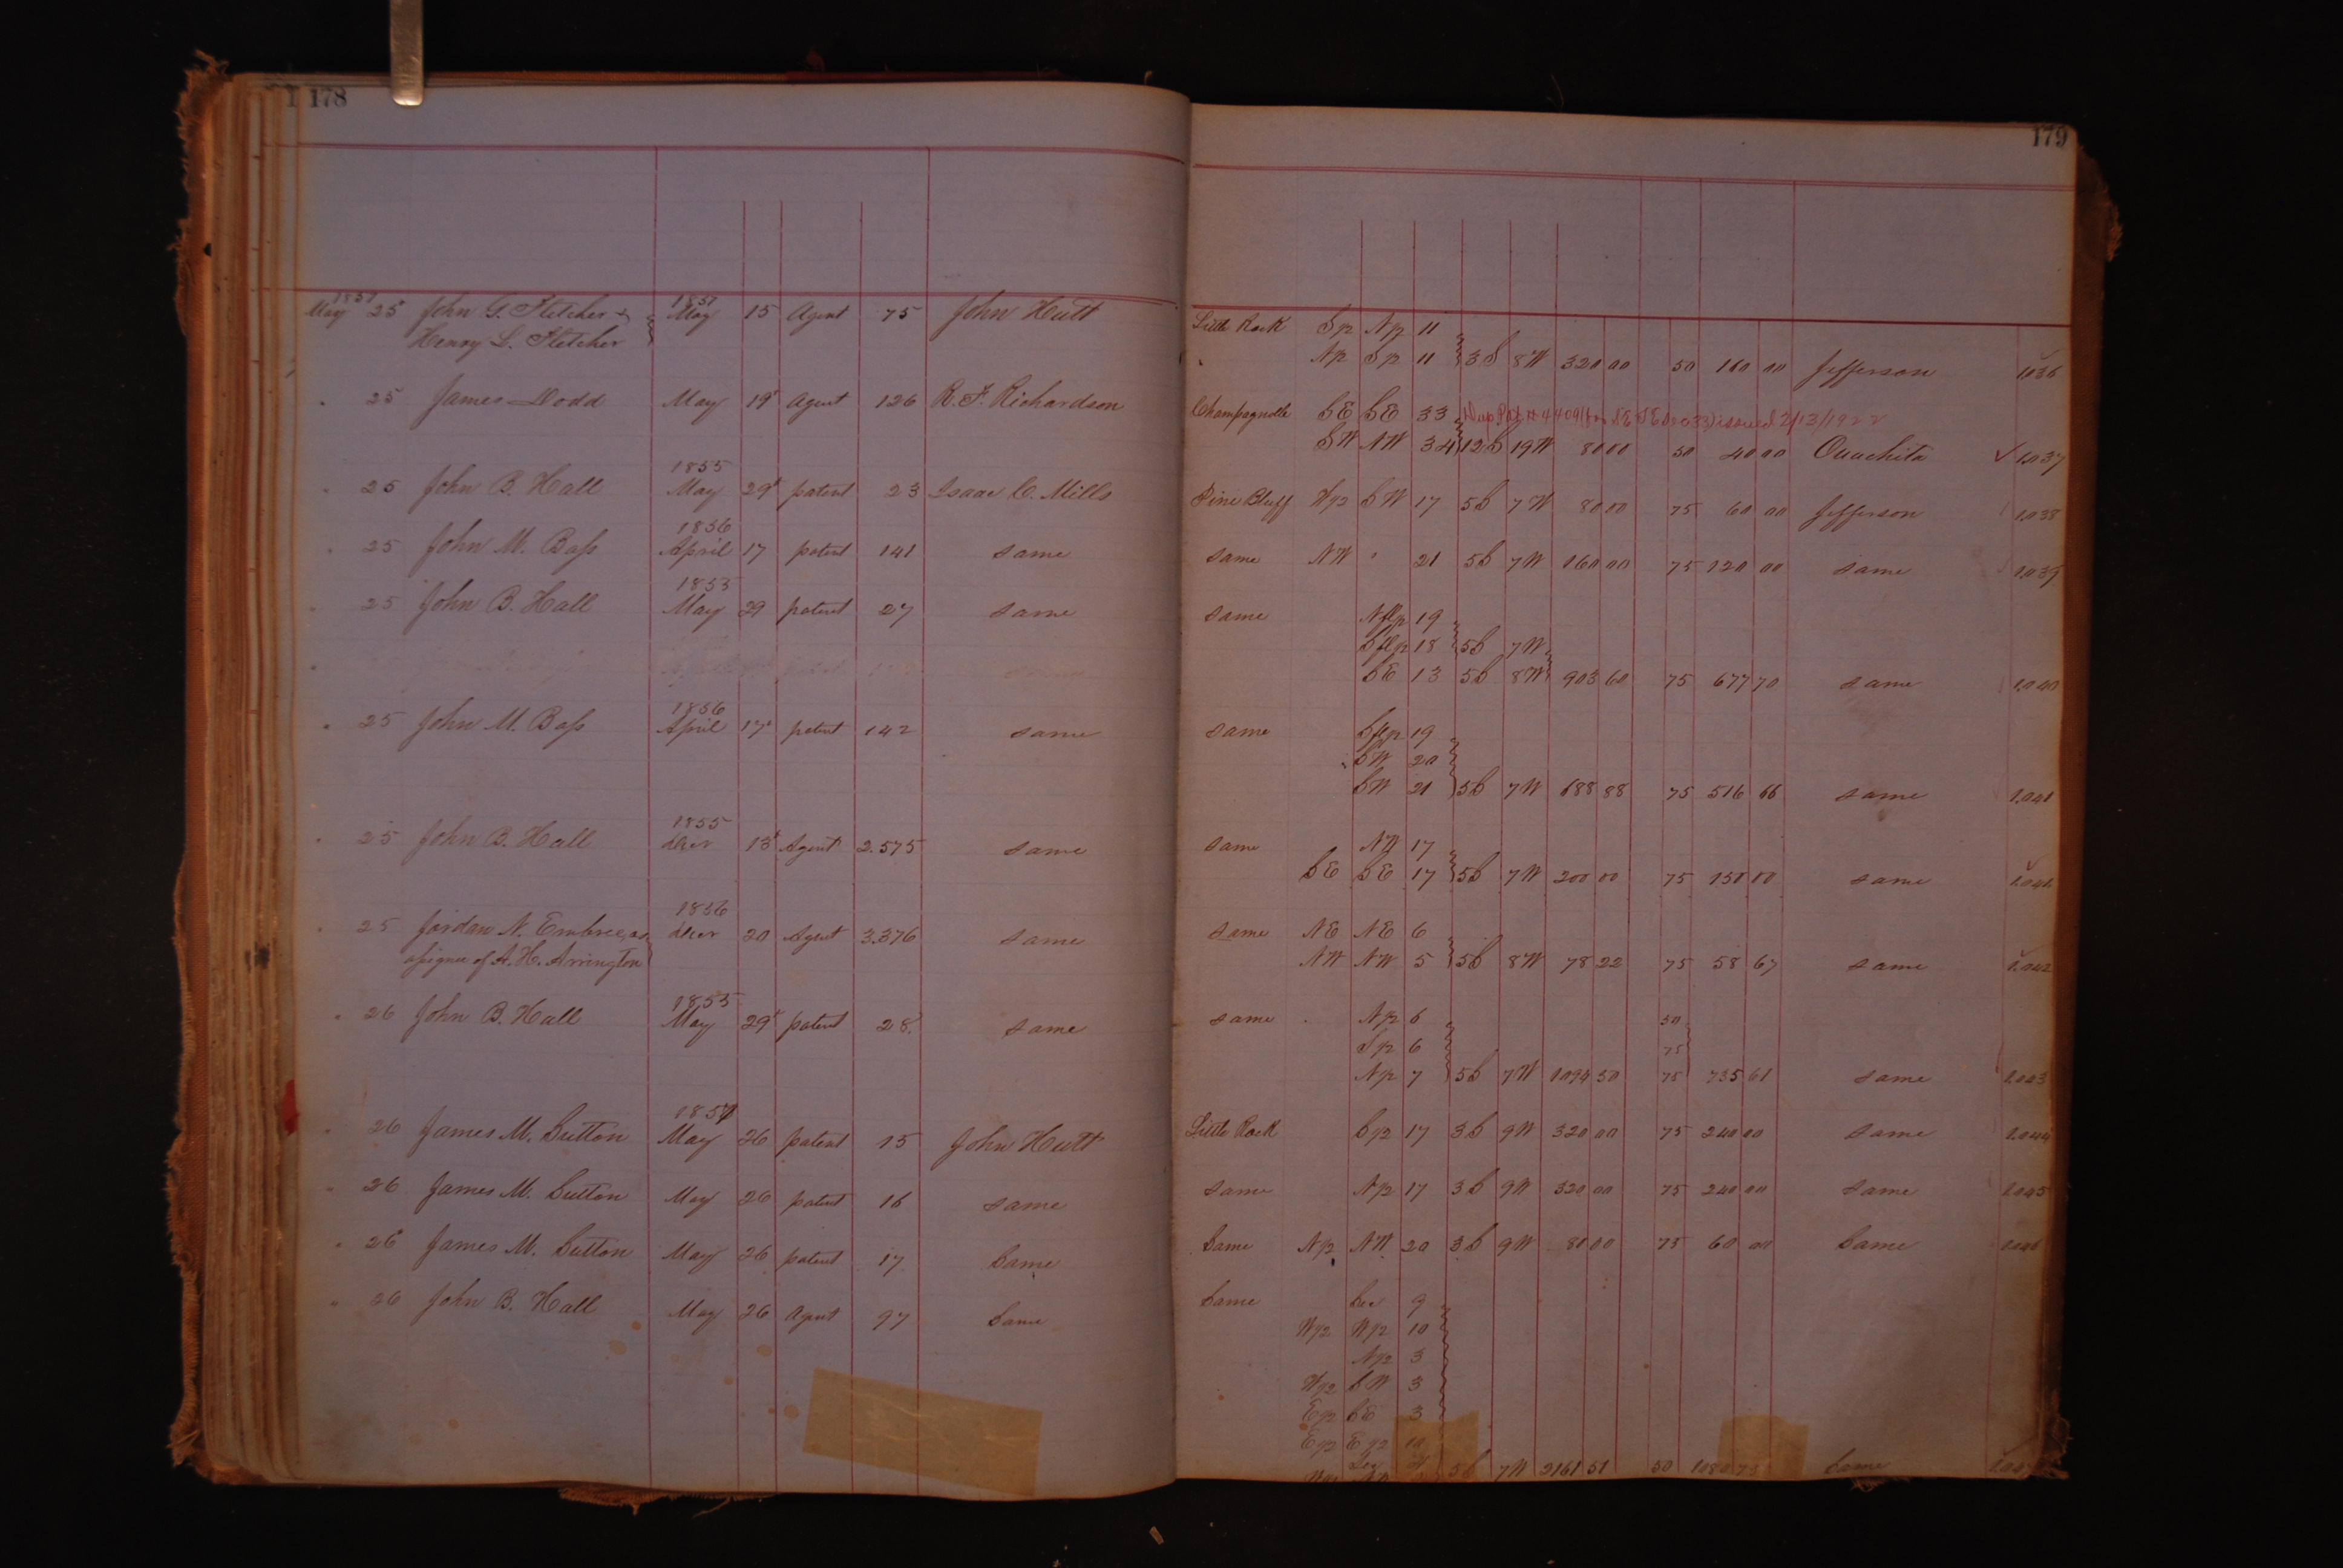 178
1857 1857
May 25 John G. Fletcher & May 15 Agent 75 John Hutt
Henry L. Fletcher
" 25 James Dodd May 19 Agent 126 R. F. Richardson
1855
" 25 John B. Hall May 29 patent 23 Isaac C. Mills
1856
" 25 John M. Bass April 17 patent 141 same
1853
" 25 John B. Hall May 29 patent 27 same
1856
" 25 John M. Bass April 17 patent 142 same
1855
" 25 John B. Hall Decr 13 Agent 2.575 same
1856
" 25 Jordan N. Embree, as Decr 20 Agent 3.376 same
assignee of A. H. Arrington
1855
" 26 John B. Hall May 29 patent 28 same
1857
" 26 James M. Sutton May 26 patent 15 John Hutt
" 26 James M. Sutton May 26 patent 16 same
" 26 James M. Sutton May 26 patent 17 Same
" 26 John B. Hall May 26 Agent 97 Same
179
Little Rock S½ N½ 11
N½ S½ 11 3S 8W 320 00 50 160 00 Jefferson 1.036
Champagnolle SE SE 33 Dup Pat # 4409 (for SE SE Sec 33) issued 2/13/1922
SW NW 34 12S 19W 80 00 50 40 00 Ouachita 1.037
Pine Bluff W½ SW 17 5S 7W 80 00 75 60 00 Jefferson 1.038
same NW " 21 5S 7W 160 00 75 120 00 same 1.039
same Nfl½ 19
Sfl½ 18 5S 7W
SE 13 5S 8W 903 60 75 677 70 same 1.040
same Sfl½ 19
SW 20
SW 21 5S 7W 688 88 75 516 66 same 1.041
same NW 17
SE SE 17 5S 7W 200 00 75 150 00 same
same NE NE 6
NW NW 5 5S 8W 78 22 75 58 67 same 1.042
same N½ 6 50
S½ 6 75
N½ 7 5S 7W 1094 50 75 735 61 same 1.043
Little Rock S½ 17 3S 9W 320 00 75 240 00 same 1.044
same N½ 17 3S 9W 320 00 75 240 00 same 1.045
Same N½ NW 20 3S 9W 80 00 75 60 00 Same 1.046
Same Sec 9
W½ W½ 10
N½ 3
W½ SW 3
E½ SE 3
E½ E½ 10
Sec 5S 7W 2161 51 50 1080 75 Same